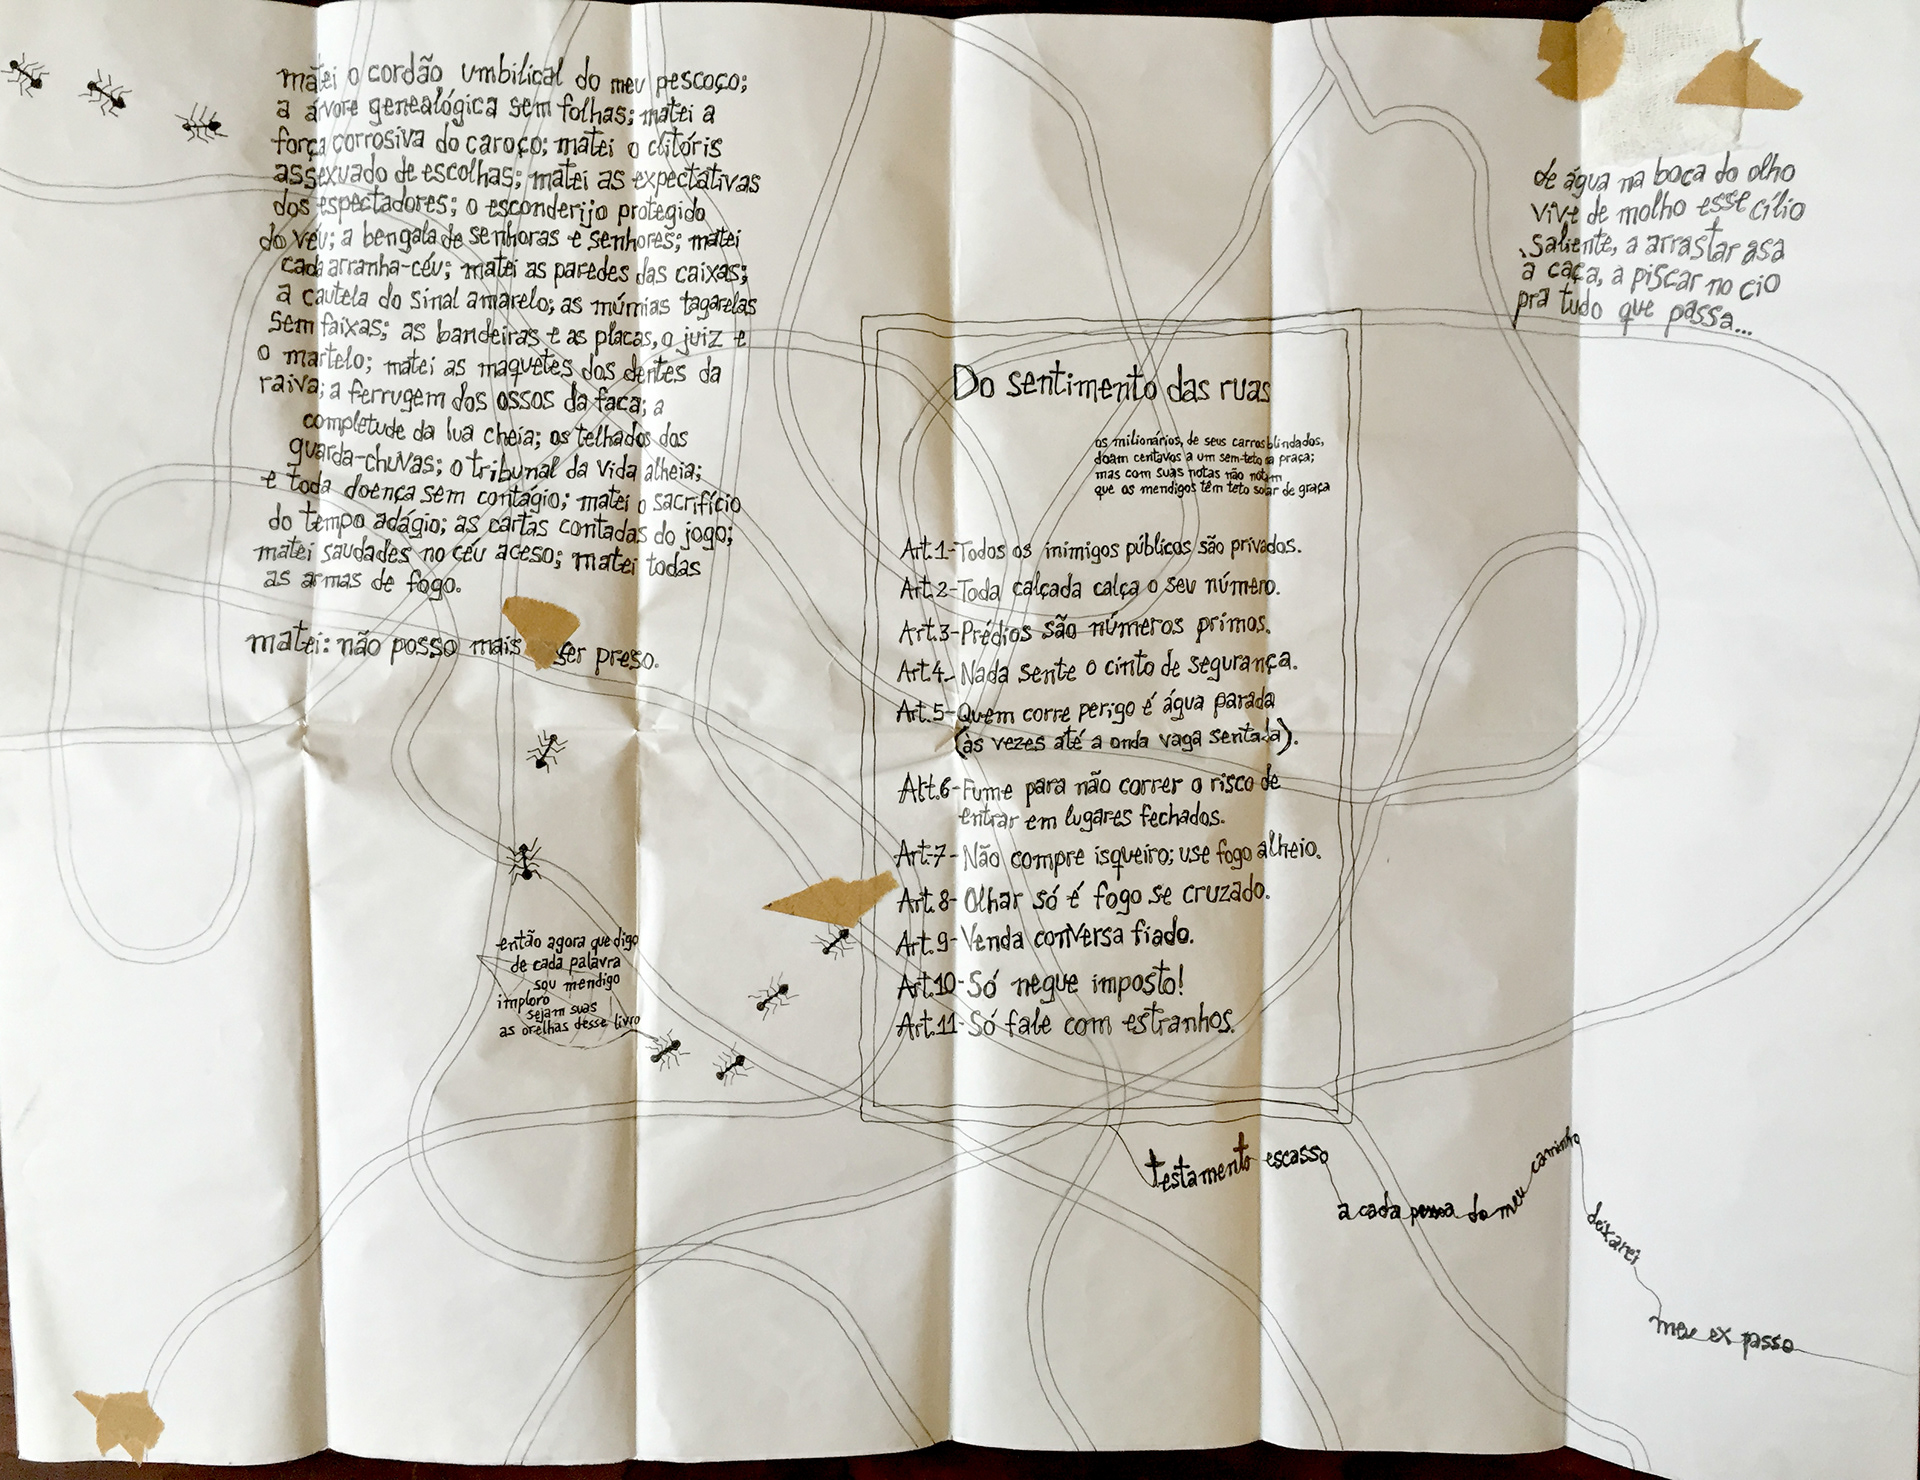 matei o cordão umbilical do meu pescoço;
a árvore genealógica sem folhas; matei a
força corrosiva do caroço; matei o clitóris
assexuado de escolhas; matei as expectativas
dos espectadores; o esconderijo protegido
do véu; a bengala de senhoras e senhores; matei
cada arranha-céu; matei as paredes das caixas;
a cautela do sinal amarelo; as múmias tagarelas
sem faixas; as bandeiras e as placas, o juiz e
o martelo; matei as maquetes dos dentes da
raiva; a ferrugem dos ossos da faca; a
completude da lua cheia; os telhados dos
guarda-chuvas; o tribunal da vida alheia;
e toda doença sem contágio; matei o sacrifício
do tempo adágio; as cartas contadas do jogo;
matei saudades no céu aceso; matei todas
as armas de fogo.
matei: não posso mais ser preso.
então agora que digo
de cada palavra
sou mendigo
imploro
sejam suas
as orelhas desse livro
Do sentimento das ruas
os milionários, de seus carros blindados,
doam centavos a um sem-teto na praça;
mas com suas notas não notam
que os mendigos têm teto solar de graça
Art.1-Todos os inimigos públicos são privados.
Art.2-Toda calçada calça o seu número.
Art.3-Prédios são números primos.
Art.4-Nada sente o cinto de segurança.
Art.5-Quem corre perigo é água parada
(às vezes até a onda vaga sentada).
Art.6-Fume para não correr o risco de
entrar em lugares fechados.
Art.7-Não compre isqueiro; use fogo alheio.
Art.8-Olhar só é fogo se cruzado.
Art.9-Venda conversa fiado.
Art.10-Só negue imposto!
Art.11-Só fale com estranhos.
de água na boca do olho
vive de molho esse cílio
saliente, a arrastar asa
a caça, a piscar no cio
pra tudo que passa...
testamento escasso
a cada do meu caminho
deixarei
meu ex passo